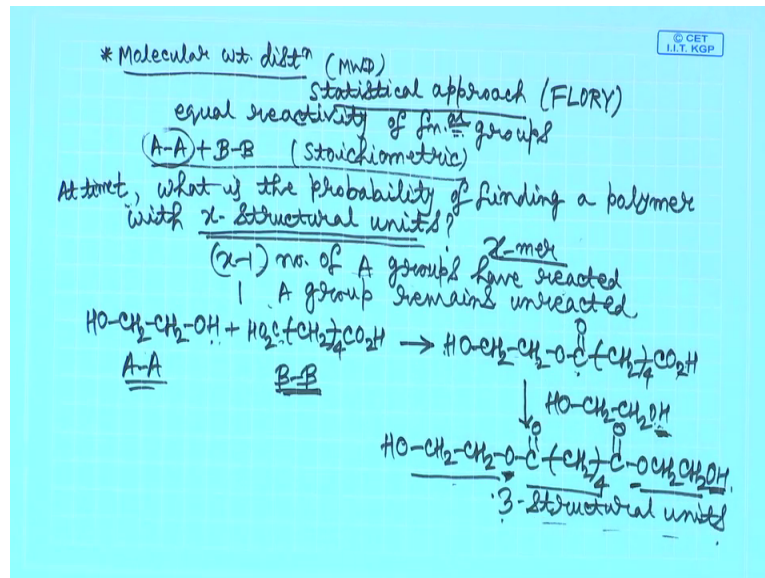 © CET
I.I.T. KGP
* Molecular wt. distⁿ (MWD)
Statistical approach (FLORY)
equal reactivity of fn.al groups
(A-A)+B-B (stoichiometric)
At time t, what is the probability of finding a polymer
with x-structural units?
x-mer
(x-1) no. of A groups have reacted
1 A group remains unreacted
HO-CH₂-CH₂-OH + HO₂C-(CH₂)₄CO₂H → HO-CH₂-CH₂-O-C(=O)-(CH₂)₄-CO₂H
A-A
B-B
↓ HO-CH₂-CH₂OH
HO-CH₂-CH₂-O-C(=O)-(CH₂)₄-C(=O)-OCH₂CH₂OH.
3-structural units